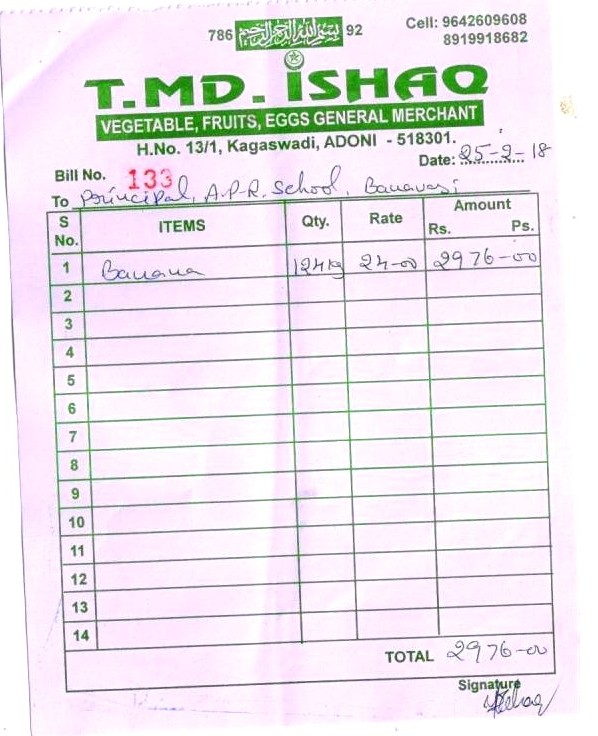 786 بسم الله الرحمن الرحيم 92
Cell: 9642609608
8919918682
T.MD. ISHAQ
VEGETABLE, FRUITS, EGGS GENERAL MERCHANT
H.No. 13/1, Kagaswadi, ADONI - 518301.
Bill No. 133 Date: 25-2-18
To Principal, A.P.R. School, Banavasi
S No. ITEMS Qty. Rate Amount Rs. Ps.
1 Banana 124kg 24-00 2976-00
2
3
4
5
6
7
8
9
10
11
12
13
14
TOTAL 2976-00
Signature